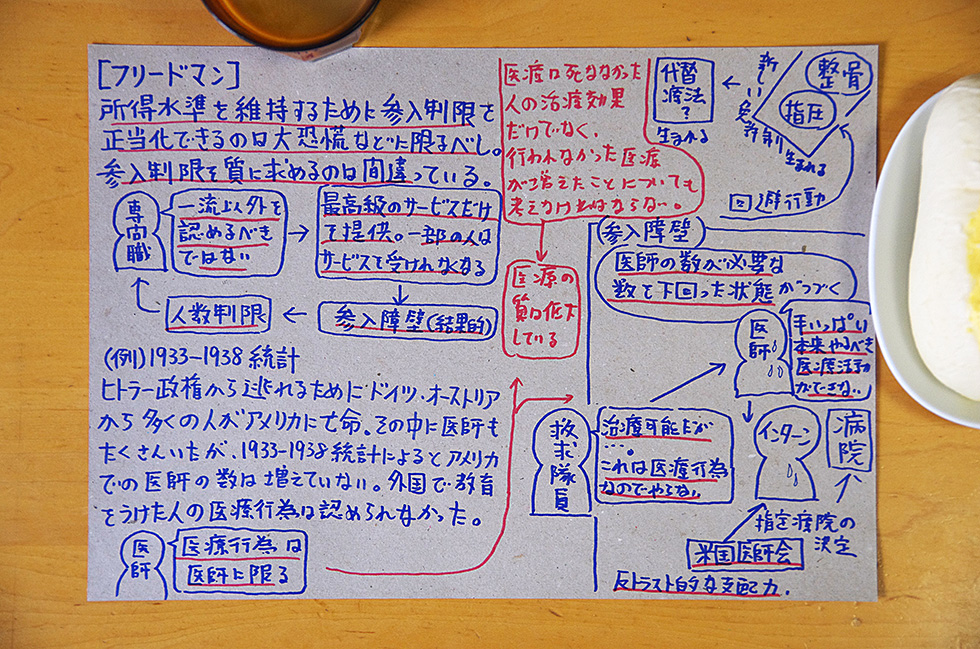 [フリードマン]
所得水準を維持するために参入制限を
正当化できるのは大恐慌などに限るべし。
参入制限を質に求めるのは間違っている。
専門職
一流以外を
認めるべき
ではない
→
最高級のサービスだけ
を提供。一部の人は
サービスを受けれなくなる
参入障壁(結果的)
←
人数制限
(例)1933-1938統計
ヒトラー政権から逃れるためにドイツ、オーストリア
から多くの人がアメリカに亡命。その中に医師も
たくさんいたが、1933-1938統計によるとアメリカ
での医師の数は増えていない。外国で教育
をうけた人の医療行為は認められなかった。
医師
医療行為は
医師に限る
医療は死ななかった
人の治療効果
だけでなく、
行われなかった医療
が増えたことについても
考えなければならない。
医療の
質は低下
している
代替
療法?
生まれる
←
新しい免許制
生まれる
整骨
指圧
回避行動
(参入障壁)
医師の数が必要な
数を下回った状態がつづく
医師
手いっぱい
本来やるべき
医療活動
ができない
救求隊員
治療可能だが
…。
これは医療行為
なのでやらない
インターン
病院
指定病院の
決定
米国医師会
反トラスト的な支配力.